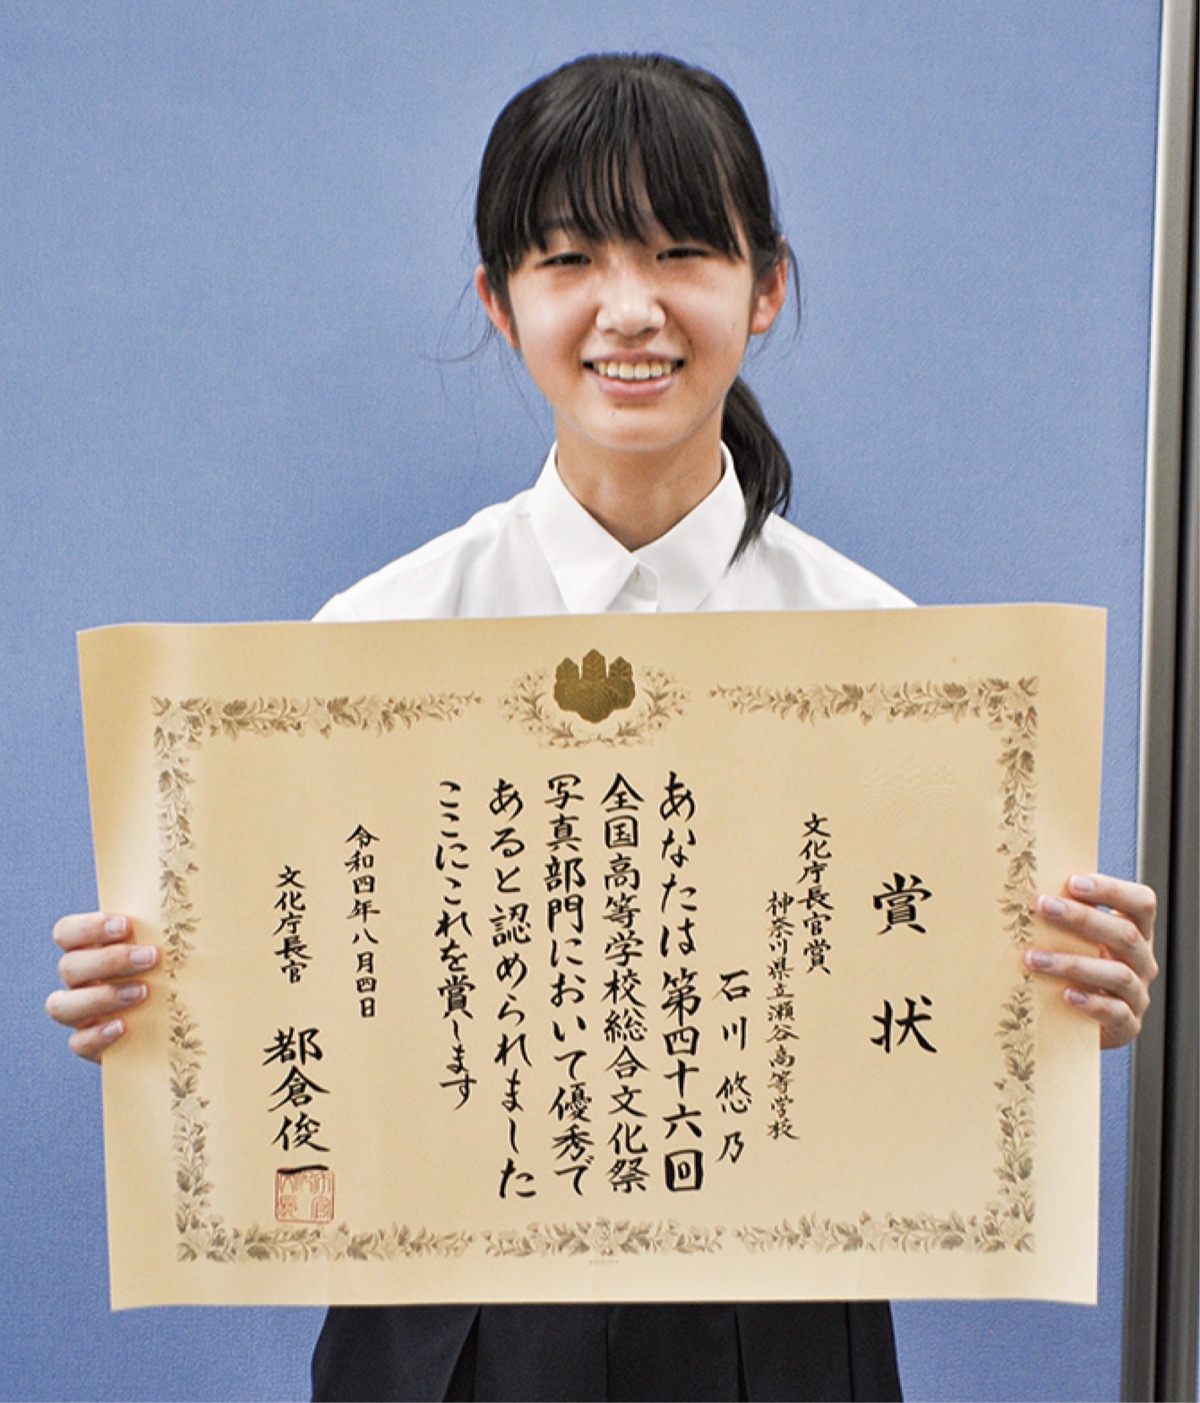 賞状
文化庁長官賞
神奈川県立瀬谷高等学校
石川悠乃
あなたは第四十六回
全国高等学校総合文化祭
写真部門において優秀で
あると認められました
ここにこれを賞します
令和四年八月四日
文化庁長官 都倉俊一